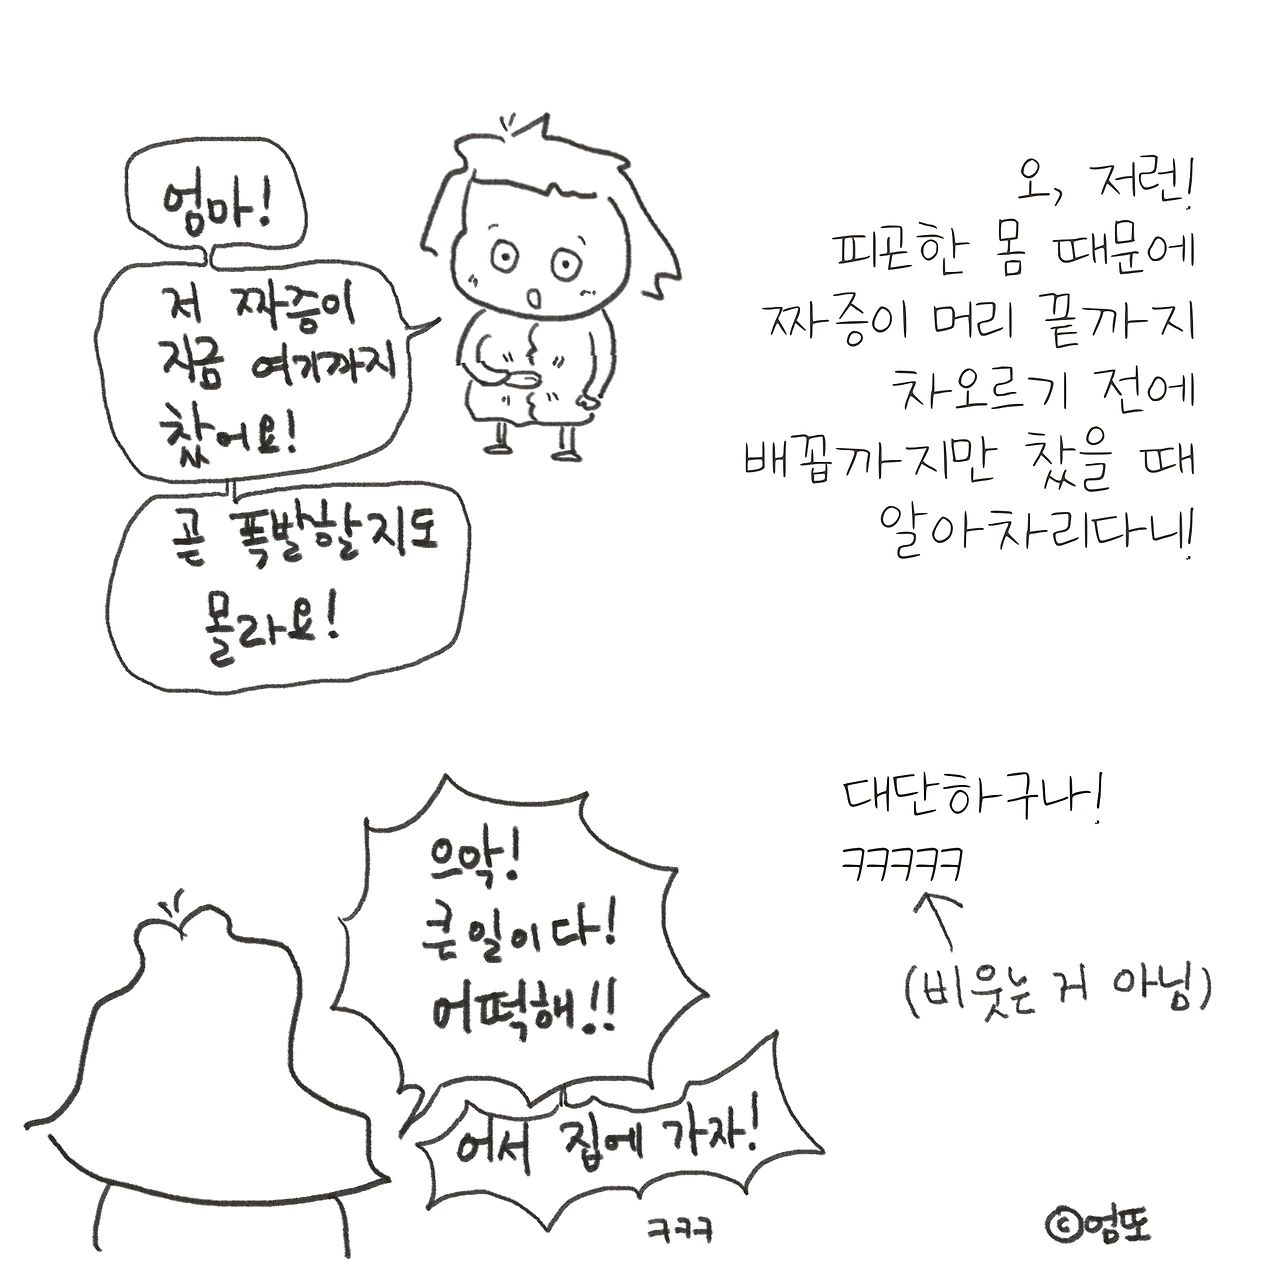 엄마!
저 짜증이
지금 여기까지
찼어요!
곧 폭발할지도
몰라요!
오, 저런!
피곤한 몸 때문에
짜증이 머리 끝까지
차오르기 전에
배꼽까지만 찼을 때
알아차리다니!
으악!
큰일이다!
어떡해!!
어서 집에 가자!
ㅋㅋㅋ
대단하구나!
ㅋㅋㅋㅋㅋ
(비웃는 거 아님)
©엄또